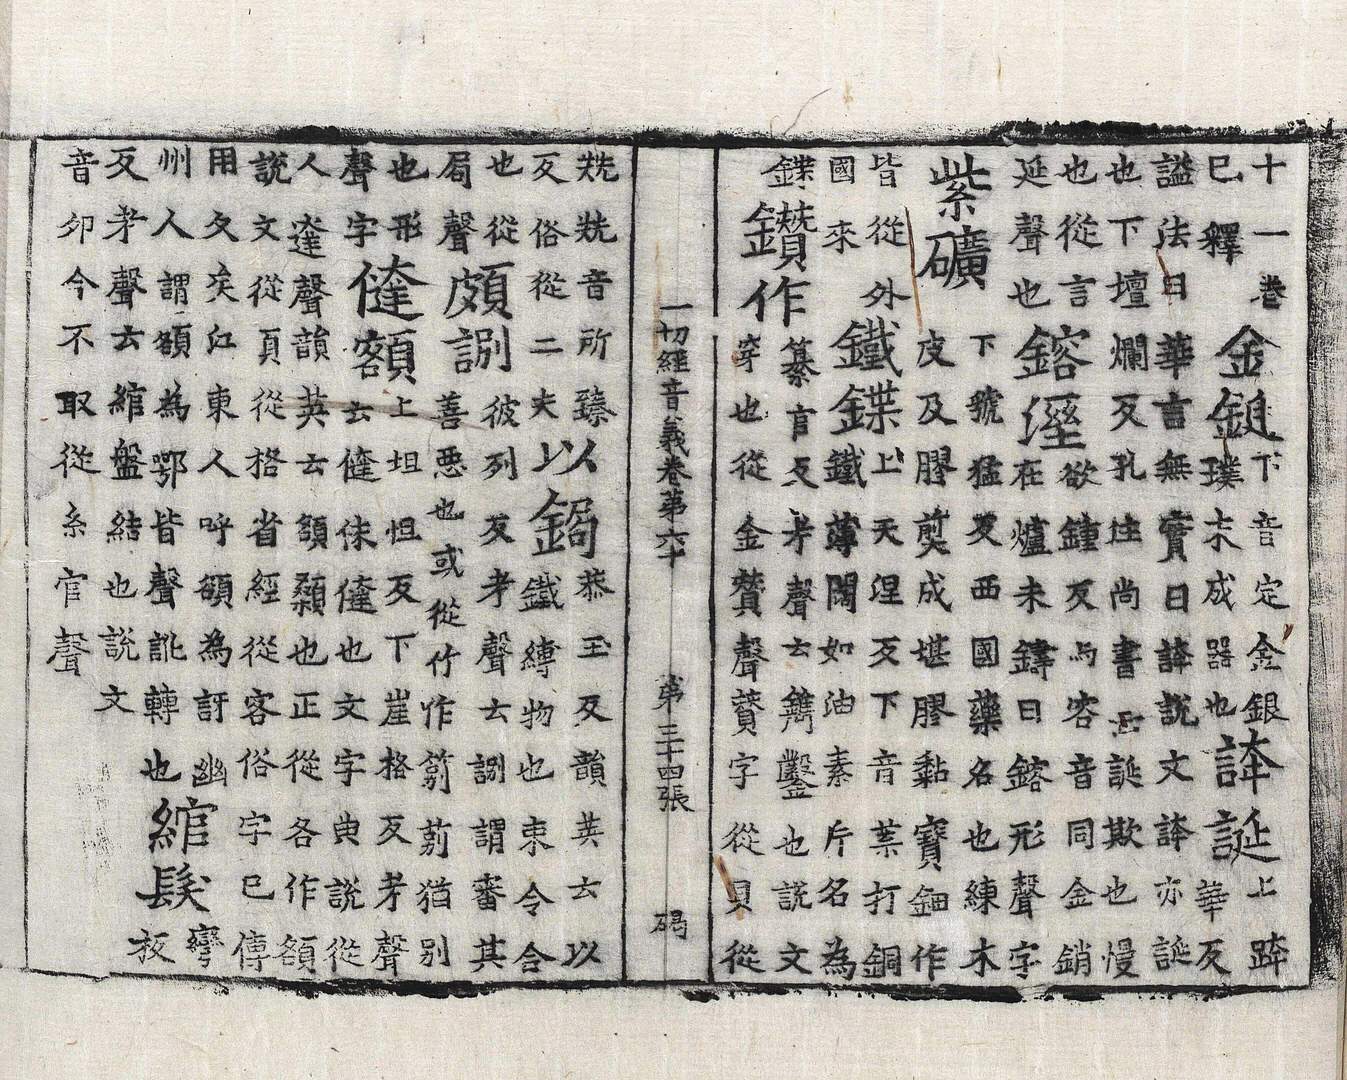 十一卷已釋金鋌下音定金銀璞未成器也誇誕上跨華反
謚法曰華言無實曰誇說文誇亦誕也下壇爛反孔注尚書云誕欺也慢
也從言延聲也鎔溼欲鍾反与容音同金銷在爐未鑄曰鎔形聲字
紫礦下虢猛反西國藥名也練木皮及膠煎成堪膠黏寶鈿作
皆從外國來鐵鍱上天涅反下音葉打銅鐵薄闊如油素斤名為
鍱鑚作纂官反考聲云鐫鑿也說文穿也從金賛聲賛字從貝從
一切經音義卷第六十 第三十四張 碣
兟兟音所臻反俗從二夫以鋦恭玉反韻英云以鐵縛物也束令合
也從局聲頗𧧸彼列反考聲云𧧸謂審其善惡也或從竹作箣莂猶別
也形聲字㒓額上坦怛反下崖格反考聲云㒓佅㒓也文字典說從
人達聲韻英云額顙也正從各作額說文從頁從格省經從客俗字已傳
用久矣江東人呼額為訝幽州人謂額為鄂皆聲訛轉也綰髮彎板
反考聲云綰盤結也說文音卯今不取從糸官聲